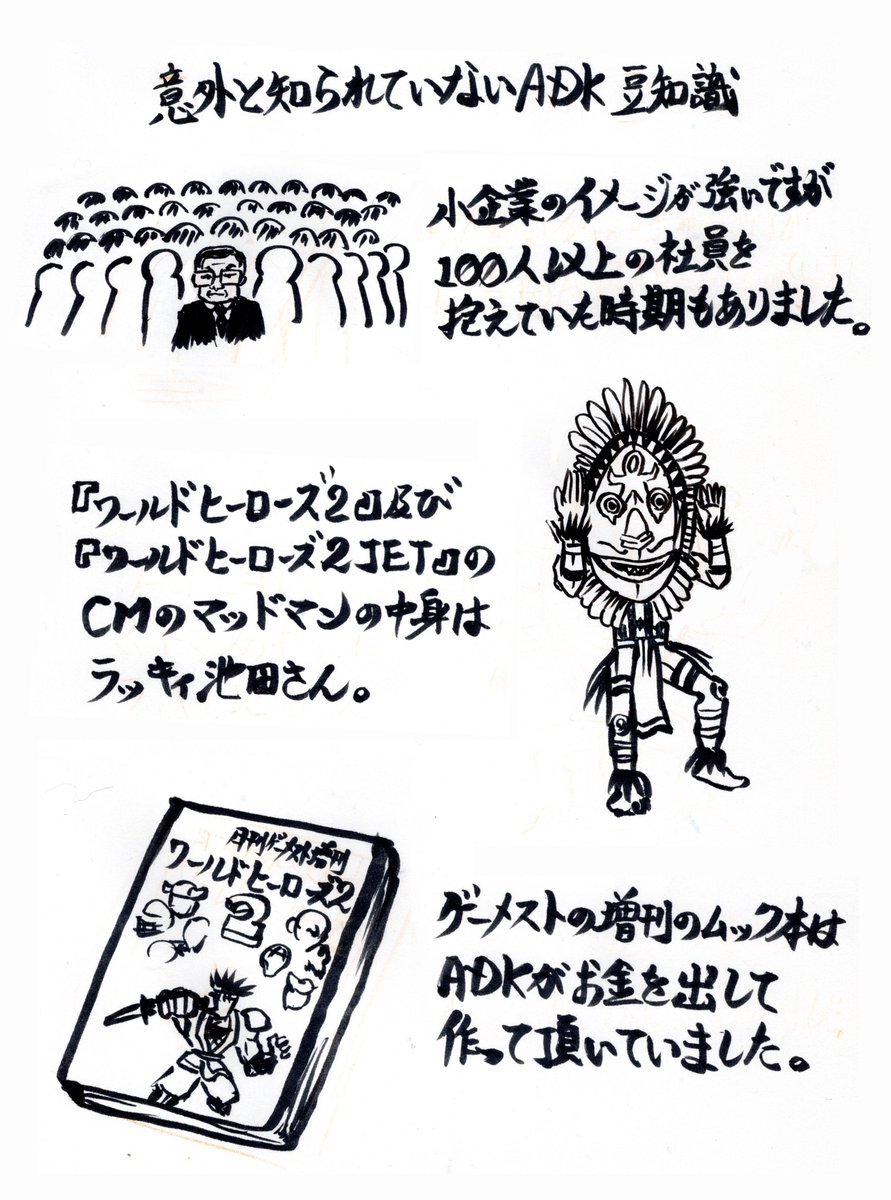 意外と知られていないADK豆知識
小企業のイメージが強いですが
100人以上の社員を
抱えていた時期もありました。
『ワールドヒーローズ2』及び
『ワールドヒーローズ2JET』の
CMのマッドマンの中身は
ラッキィ池田さん。
月刊ゲーメスト増刊
ワールドヒーローズ2
2
ゲーメストの増刊のムック本は
ADKがお金を出して
作って頂いていました。